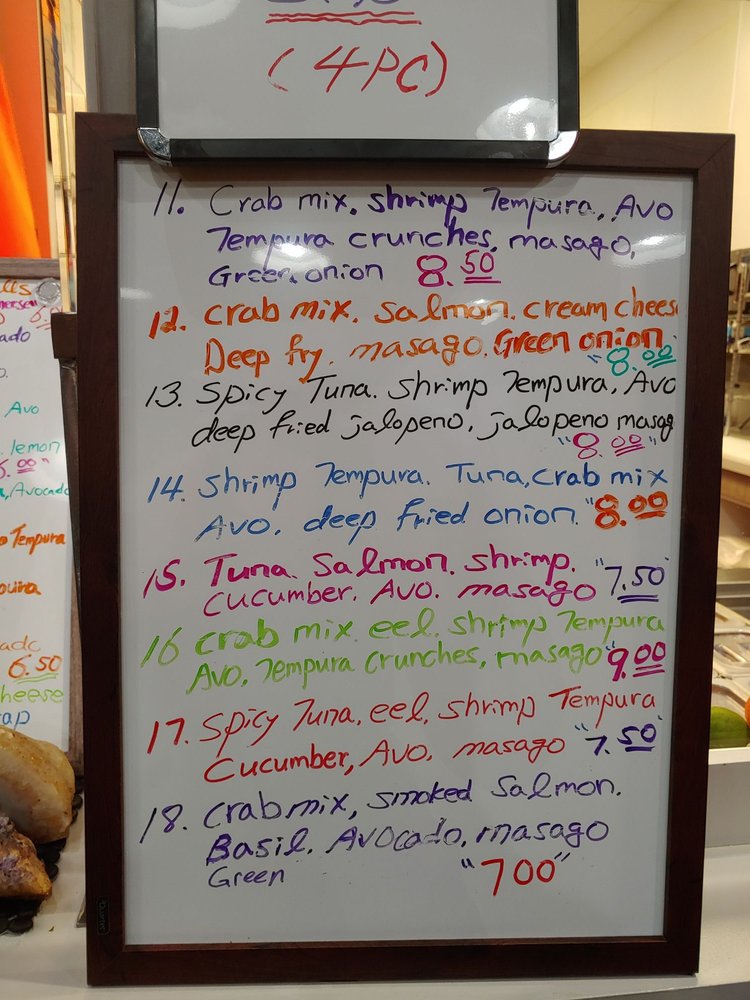 (4PC)
11. Crab mix, shrimp Tempura, Avo
Tempura crunches, masago,
Green onion 8.50
12. crab mix. Salmon. cream chees
Deep fry. masago. Green onion.
"8.00
13. Spicy Tuna. shrimp Tempura, Avo
deep fried jalopeno, jalopeno masag
"8.00"
14. shrimp Tempura. Tuna, crab mix
Avo. deep fried onion. "8.00
15. Tuna. Salmon. shrimp.
Cucumber. Avo. masago "7.50"
16 crab mix. eel. shrimp Tempura
Avo, Tempura Crunches, masago "9.00
17. Spicy Tuna, eel, shrimp Tempura
Cucumber, Avo. masago "7.50"
18. Crab mix, smoked Salmon.
Basil. Avocado, masago
Green "700"
Avo
lemon
5.00"
Avocado
Tempura
6.50
cheese